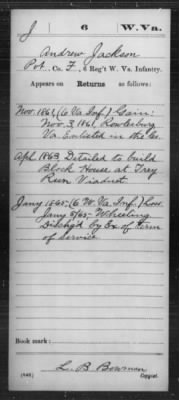 J 6 W.Va.
Andrew Jackson
Pvt., Co. F, 6 Reg't W. Va. Infantry.
Appears on Returns as follows:
Nov. 1861, (6 Va Inf.) Gain:
Nov. 3, 1861, Rowlesburg
Va. Enlisted in the Co.
Apl. 1863 Detailed to build
Block House at Trey
Run Viaduct.
Jany 1865-(6 W. Va. Inf.) Loss
Jany 5/65- Wheeling
Dischg'd by Ex. of term
of service
Book mark:
L. B. Bowman
(546) Copyist.